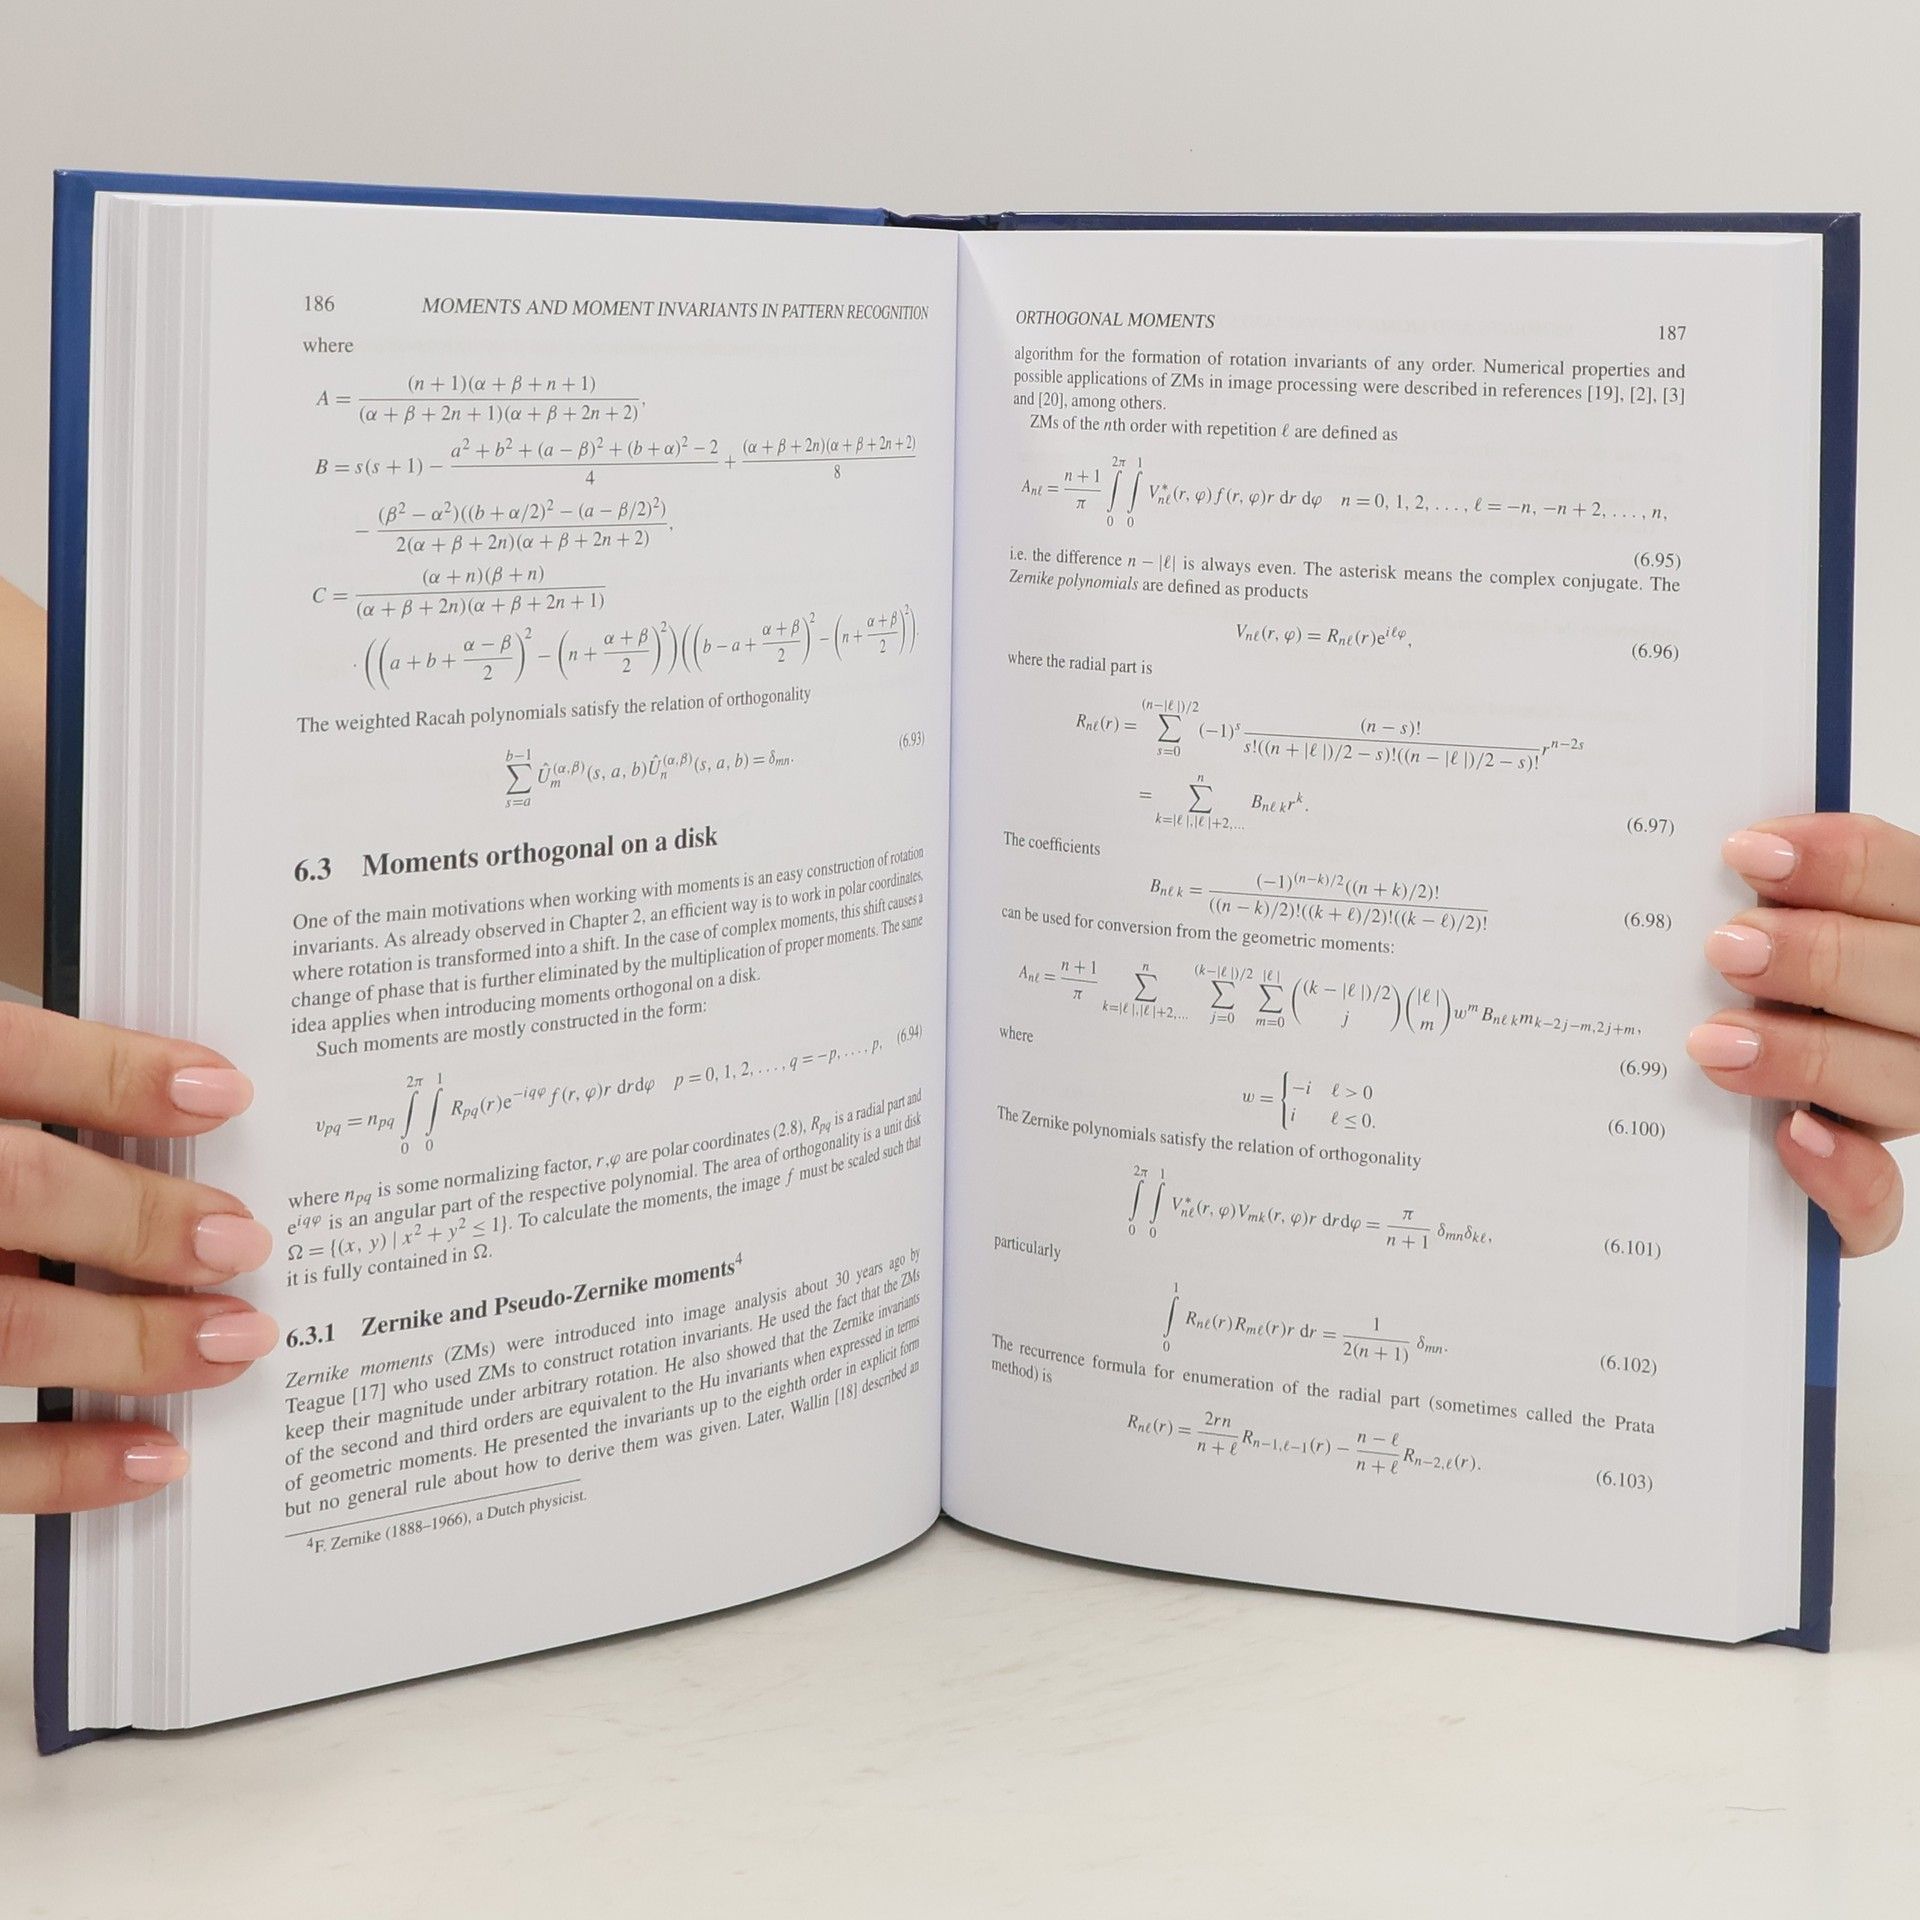 186 MOMENTS AND MOMENT INVARIANTS IN PATTERN RECOGNITION
where
A = (n + 1)(α + β + n + 1) / (α + β + 2n + 1)(α + β + 2n + 2),
B = s(s + 1) − (a² + b² + (a − β)² + (b + α)² − 2) / 4 + (α + β + 2n)(α + β + 2n + 2) / 8
− (β² − α²)((b + α/2)² − (a − β/2)²) / 2(α + β + 2n)(α + β + 2n + 2),
C = (α + n)(β + n) / (α + β + 2n)(α + β + 2n + 1)
· ((a + b + (α − β)/2)² − (n + (α + β)/2)²)((b − a + (α + β)/2)² − (n + (α + β)/2)²).
The weighted Racah polynomials satisfy the relation of orthogonality
∑_{s=a}^{b−1} Û_m^{(α,β)}(s, a, b)Û_n^{(α,β)}(s, a, b) = δ_{mn}. (6.93)
6.3 Moments orthogonal on a disk
One of the main motivations when working with moments is an easy construction of rotation
invariants. As already observed in Chapter 2, an efficient way is to work in polar coordinates,
where rotation is transformed into a shift. In the case of complex moments, this shift causes a
change of phase that is further eliminated by the multiplication of proper moments. The same
idea applies when introducing moments orthogonal on a disk.
Such moments are mostly constructed in the form:
v_{pq} = n_{pq} ∫_0^{2π} ∫_0^1 R_{pq}(r)e^{−iqφ} f(r, φ)r drdφ p = 0, 1, 2, . . . , q = −p, . . . , p, (6.94)
where n_{pq} is some normalizing factor, r,φ are polar coordinates (2.8), R_{pq} is a radial part and
e^{iqφ} is an angular part of the respective polynomial. The area of orthogonality is a unit disk
Ω = {(x, y) | x² + y² ≤ 1}. To calculate the moments, the image f must be scaled such that
it is fully contained in Ω.
6.3.1 Zernike and Pseudo-Zernike moments⁴
Zernike moments (ZMs) were introduced into image analysis about 30 years ago by
Teague [17] who used ZMs to construct rotation invariants. He used the fact that the ZMs
keep their magnitude under arbitrary rotation. He also showed that the Zernike invariants
of the second and third orders are equivalent to the Hu invariants when expressed in terms
of geometric moments. He presented the invariants up to the eighth order in explicit form
but no general rule about how to derive them was given. Later, Wallin [18] described an
⁴F. Zernike (1888–1966), a Dutch physicist.
ORTHOGONAL MOMENTS 187
algorithm for the formation of rotation invariants of any order. Numerical properties and
possible applications of ZMs in image processing were described in references [19], [2], [3]
and [20], among others.
ZMs of the nth order with repetition ℓ are defined as
A_{nℓ} = (n + 1)/π ∫_0^{2π} ∫_0^1 V*_{nℓ}(r, φ)f(r, φ)r dr dφ n = 0, 1, 2, . . . , ℓ = −n, −n + 2, . . . , n,
(6.95)
i.e. the difference n − |ℓ| is always even. The asterisk means the complex conjugate. The
Zernike polynomials are defined as products
V_{nℓ}(r, φ) = R_{nℓ}(r)e^{iℓφ}, (6.96)
where the radial part is
R_{nℓ}(r) = ∑_{s=0}^{(n−|ℓ|)/2} (−1)^s (n − s)! / s!((n + |ℓ|)/2 − s)!((n − |ℓ|)/2 − s)! r^{n−2s}
= ∑_{k=|ℓ|,|ℓ|+2,...}^{n} B_{nℓk}r^k. (6.97)
The coefficients
B_{nℓk} = (−1)^{(n−k)/2}((n + k)/2)! / ((n − k)/2)!((k + ℓ)/2)!((k − ℓ)/2)! (6.98)
can be used for conversion from the geometric moments:
A_{nℓ} = (n + 1)/π ∑_{k=|ℓ|,|ℓ|+2,...}^{n} ∑_{j=0}^{(k−|ℓ|)/2} ∑_{m=0}^{|ℓ|} ((k − |ℓ|)/2 j)(|ℓ| m) w^m B_{nℓk}m_{k−2j−m,2j+m},
(6.99)
where
w = { −i ℓ > 0
i ℓ ≤ 0. (6.100)
The Zernike polynomials satisfy the relation of orthogonality
∫_0^{2π} ∫_0^1 V*_{nℓ}(r, φ)V_{mk}(r, φ)r drdφ = π/(n + 1) δ_{mn}δ_{kℓ}, (6.101)
particularly
∫_0^1 R_{nℓ}(r)R_{mℓ}(r)r dr = 1/2(n + 1) δ_{mn}. (6.102)
The recurrence formula for enumeration of the radial part (sometimes called the Prata
method) is
R_{nℓ}(r) = 2rn/(n + ℓ) R_{n−1,ℓ−1}(r) − (n − ℓ)/(n + ℓ) R_{n−2,ℓ}(r). (6.103)